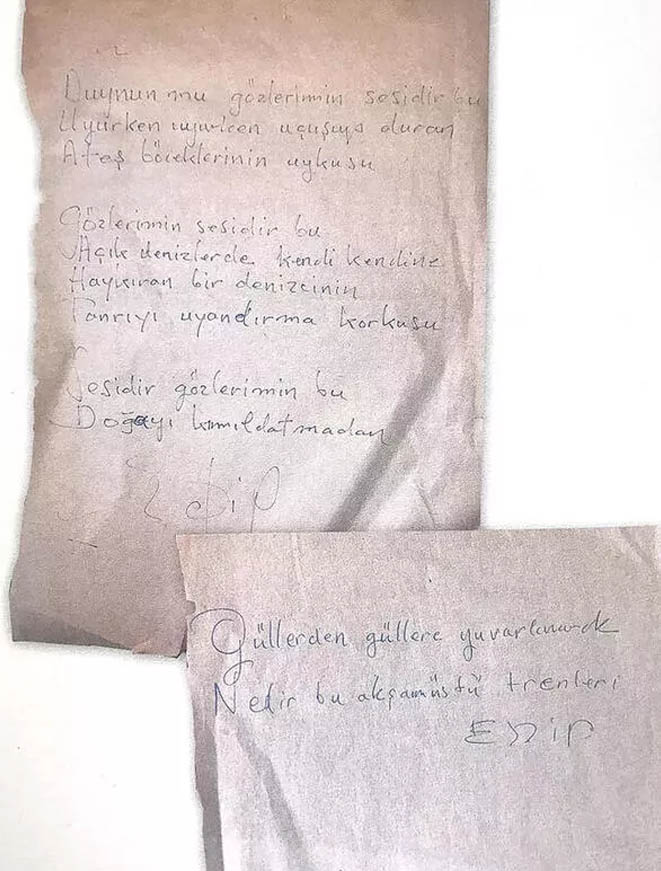 Duydun mu gözlerimin sesidir bu
Uyurken uyurken uçuşup duran
Ateş böceklerinin uykusu
Gözlerimin sesidir bu
Açık denizlerde kendi kendine
Haykıran bir denizcinin
Tanrıyı uyandırma korkusu
Sesidir gözlerimin bu
Doğayı kımıldatmadan
Edip
Güllerden güllere yuvarlanarak
Nedir bu akşamüstü trenleri
EDİP